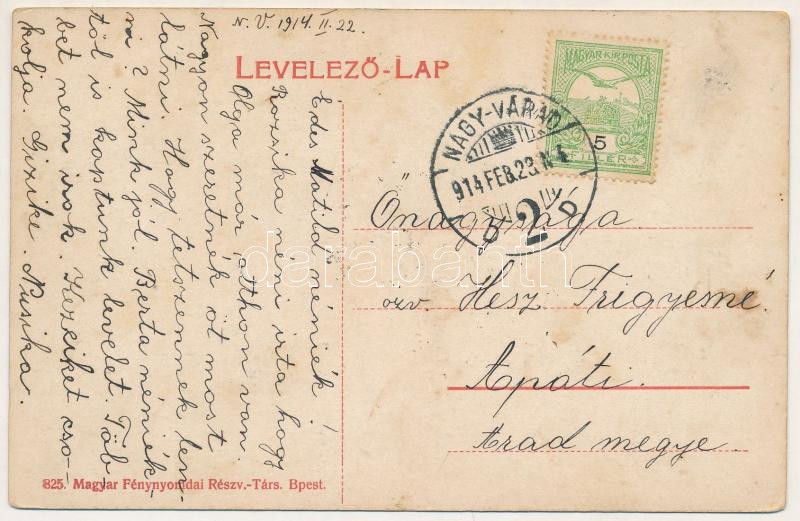 N. V. 1914. II. 22.
LEVELEZŐ-LAP
MAGYAR KIR. POSTA
5
FILLÉR
NAGY-VÁRAD
914 FEB. 23. N 4
2
D
Édes Matild néniék!
Rozsika néni irta hogy
Olga már itthon van.
Nagyon szeretnek öt most
látni. Hogy tetszennek len-
ni? Mink jól. Berta néniék-
töl is kaptunk levelet. Töb-
bet nem irok. Kezeiket cso-
kolja. Gizike. Nusika.
Önagysága
özv. Hesz Frigyesné
Apáti.
Arad megye.
825. Magyar Fénynyomdai Részv.-Társ. Bpest.
darabanth